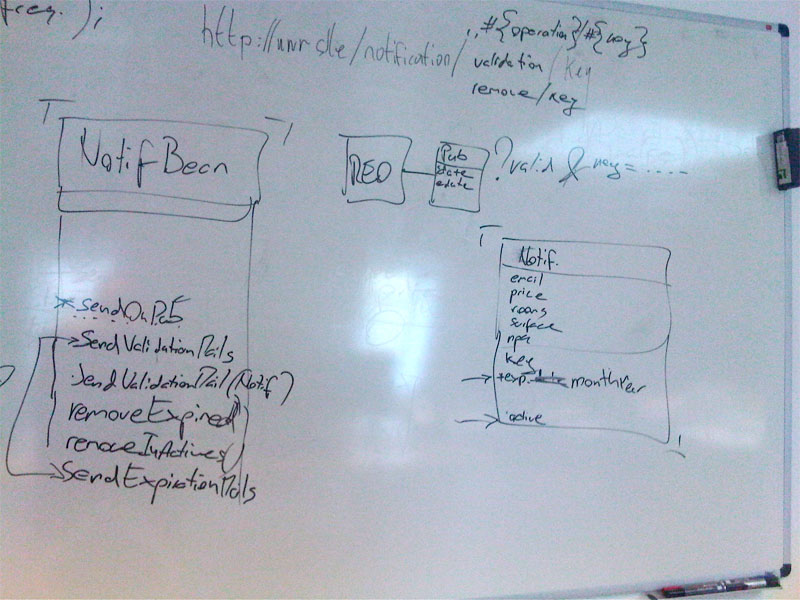 freq. );
http://www.slle/notification/
#{operation}/#{key}
validation / key
remove/key
NotifBean
REO
Pub
state
edate
?valid & key= ....
*sendOnPub
SendValidationMails
SendValidationMail(Notif)
removeExpired()
removeInActives()
SendExpirationMails
Notif.
email
price
rooms
surface
npa
key
*exp. monthYear
active